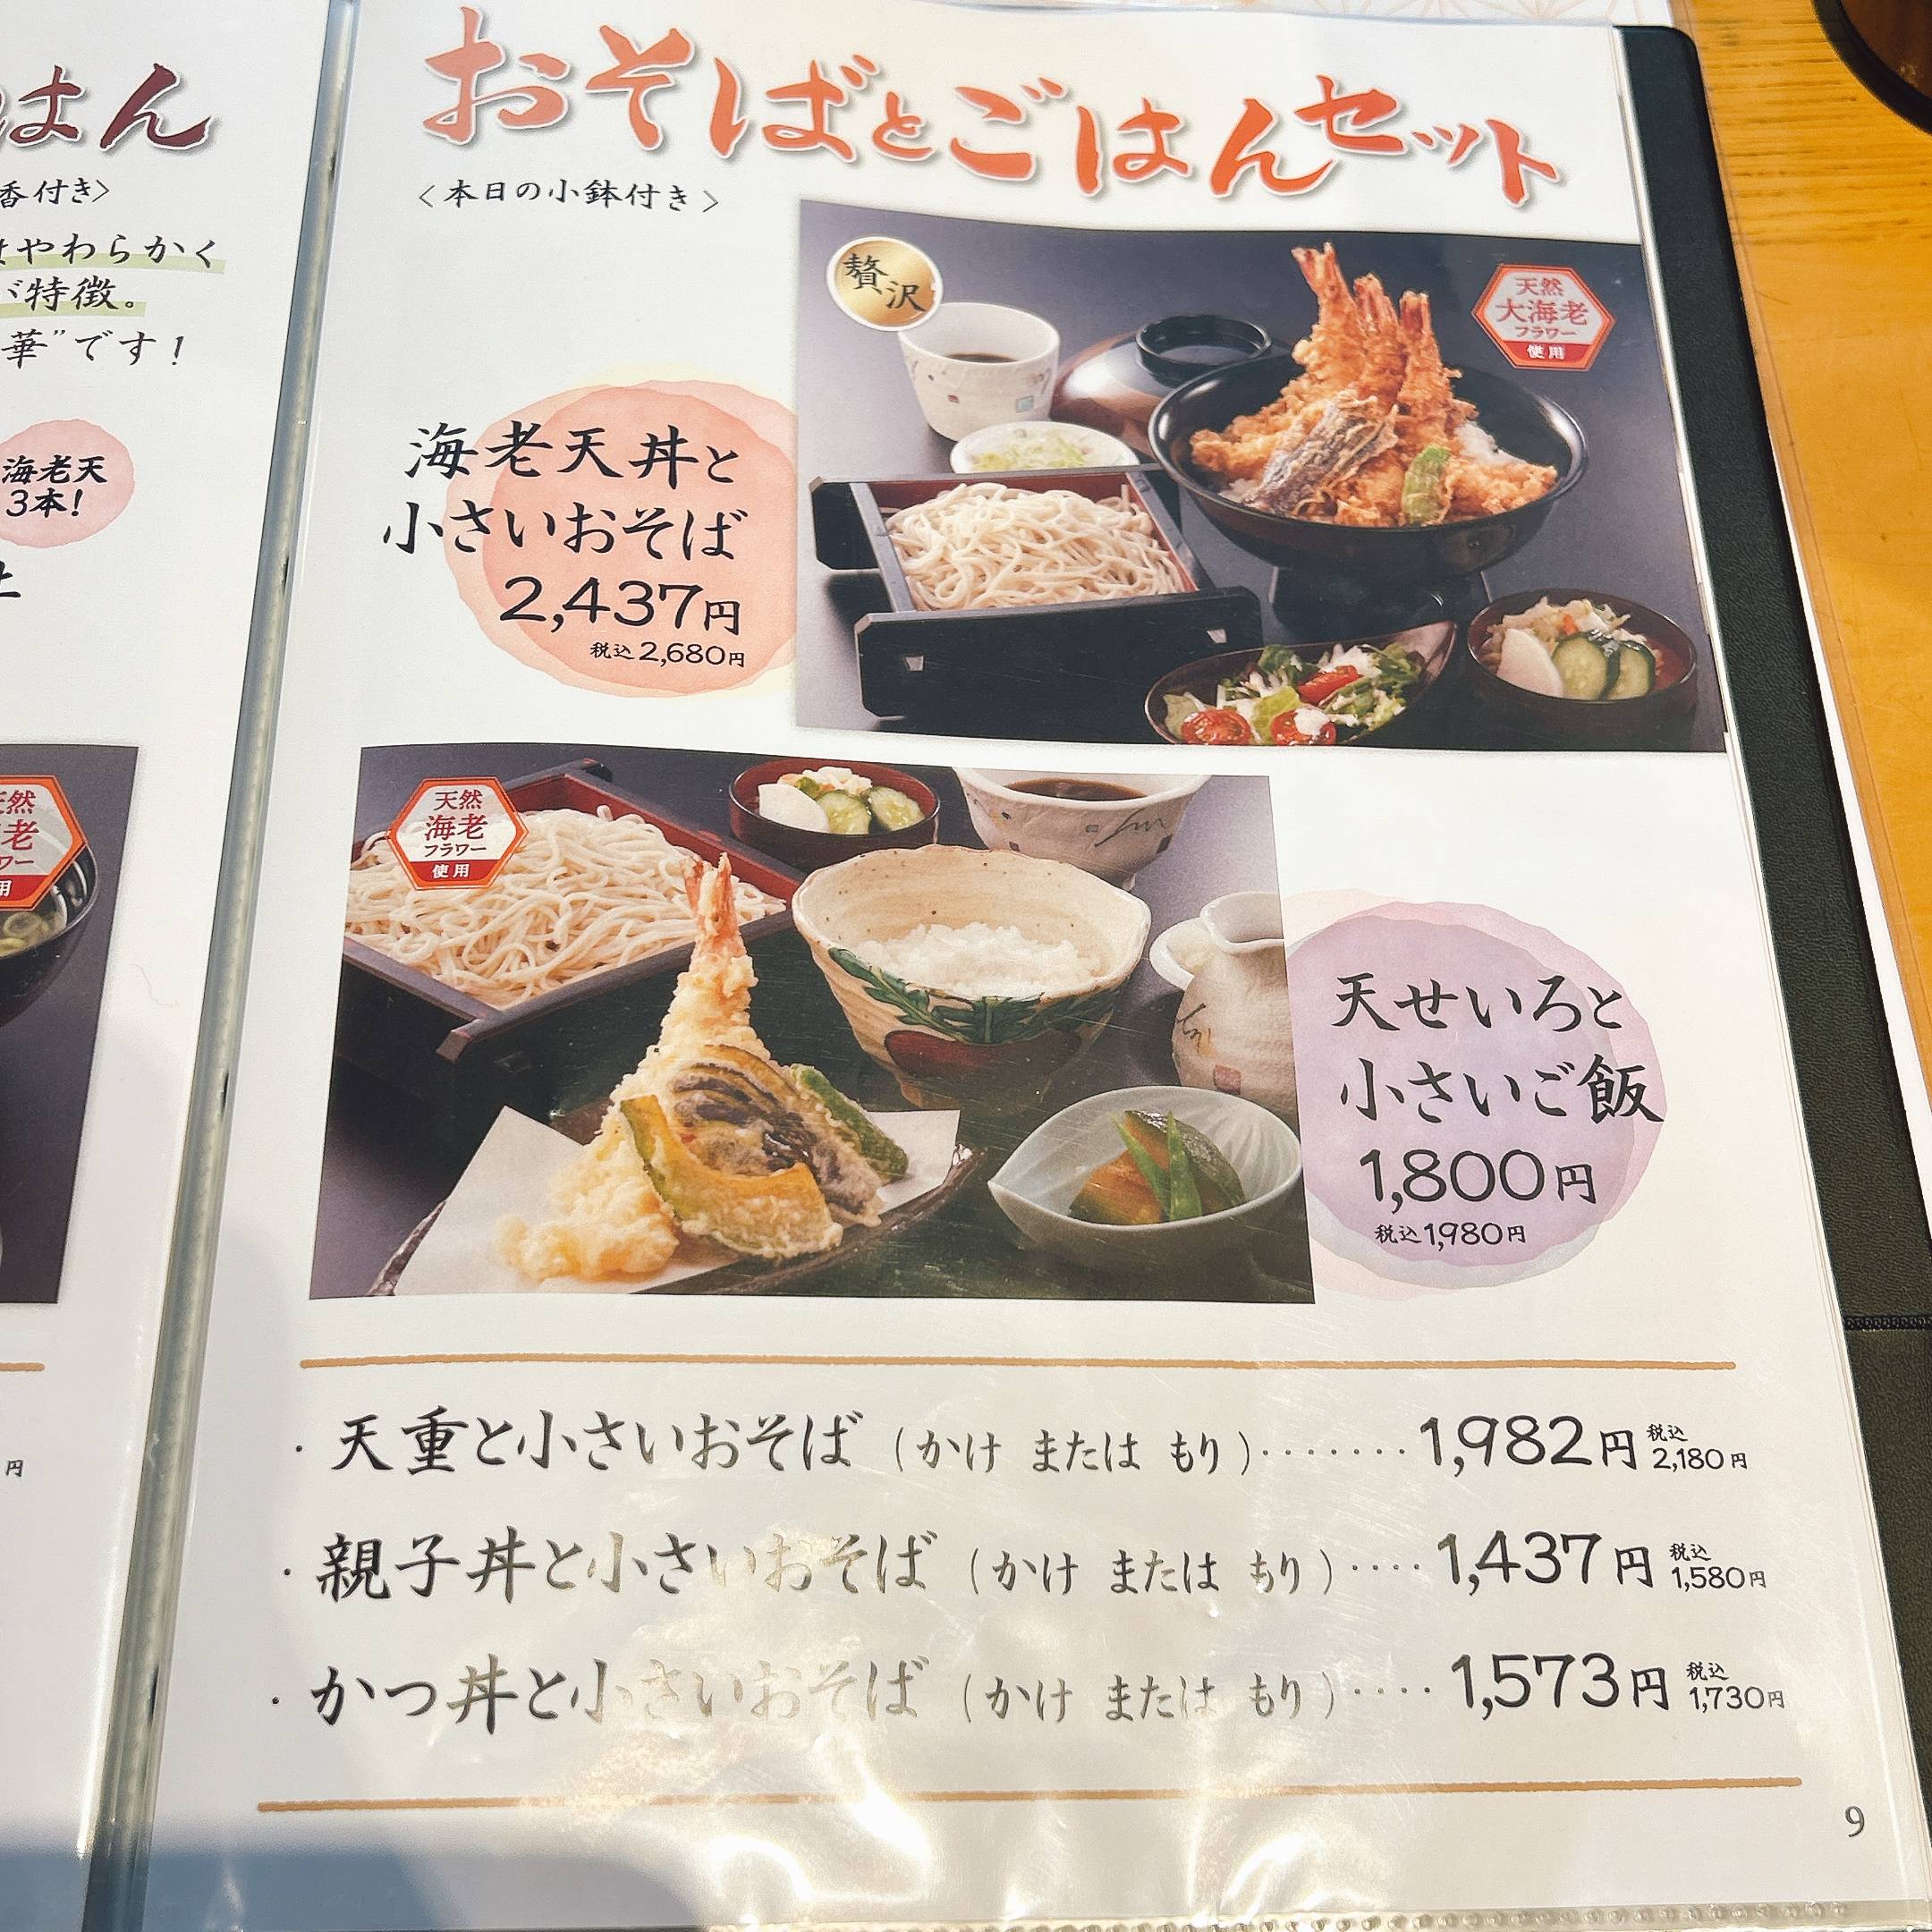 はん
香付き〉
はやわらかく
が特徴。
華”です！
海老天
3本！
天然
老
ワー
用
円
おそばとごはんセット
〈本日の小鉢付き〉
贅沢
天然
大海老
フラワー
使用
海老天丼と
小さいおそば
2,437円
税込2,680円
天然
海老
フラワー
使用
天せいろと
小さいご飯
1,800円
税込1,980円
・天重と小さいおそば（かけ または もり）‥‥‥‥1,982円 税込2,180円
・親子丼と小さいおそば（かけ または もり）‥‥1,437円 税込1,580円
・かつ丼と小さいおそば（かけ または もり）‥‥1,573円 税込1,730円
9